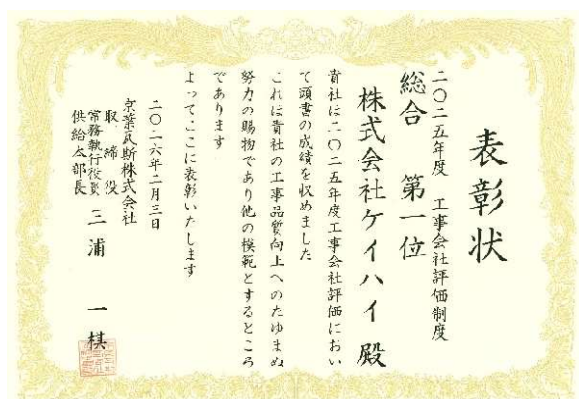 表彰状
二〇二五年度 工事会社評価制度
総合 第一位
株式会社ケイハイ殿
貴社は二〇二五年度工事会社評価におい
て頭書の成績を収めました
これは貴社の工事品質向上へのたゆまぬ
努力の賜物であり他の模範とするところ
であります
よってここに表彰いたします
二〇二六年二月三日
京葉瓦斯株式会社
取締役
常務執行役員
供給本部長
三浦 一棋